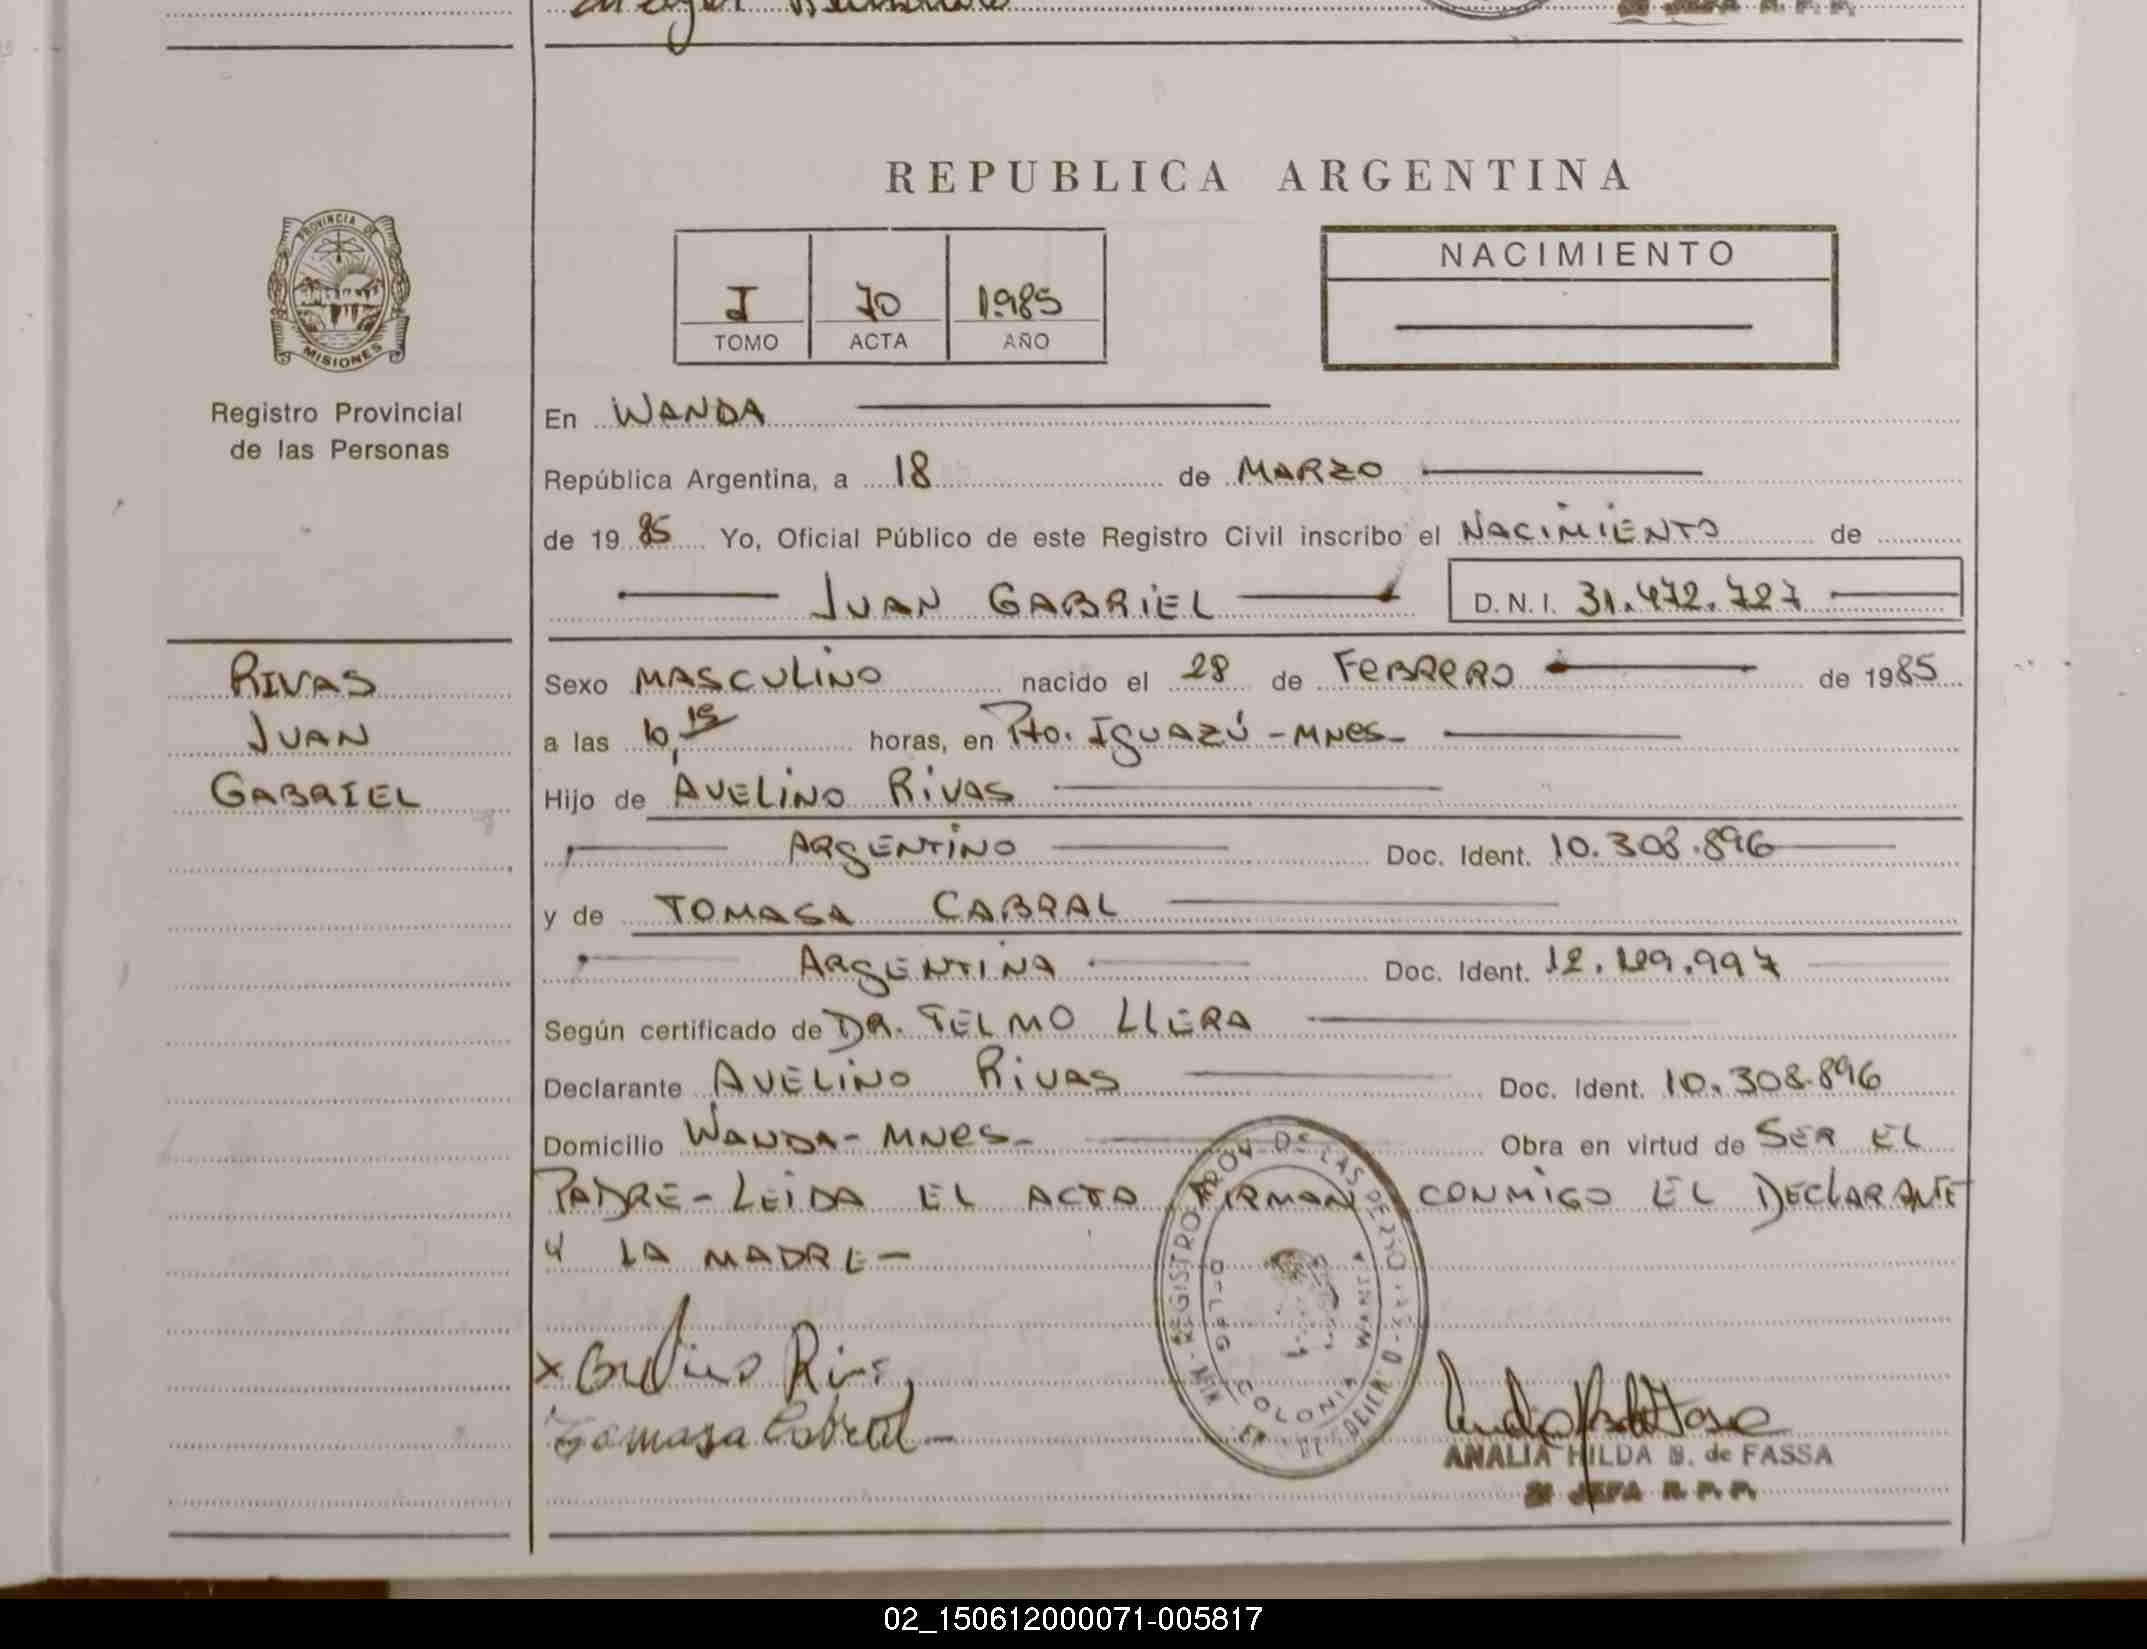 PROVINCIA DE
MISIONES
Registro Provincial
de las Personas
RIVAS
JUAN
GABRIEL
REPUBLICA ARGENTINA
I 70 1985
TOMO ACTA AÑO
NACIMIENTO
En WANDA
República Argentina, a 18 de MARZO
de 19 85 Yo, Oficial Público de este Registro Civil inscribo el NACIMIENTO de
JUAN GABRIEL D.N.I. 31.472.727
Sexo MASCULINO nacido el 28 de FEBRERO de 1985
a las 10,15 horas, en Pto. IGUAZÚ - MNES-
Hijo de AVELINO RIVAS
ARGENTINO Doc. Ident. 10.308.896
y de TOMASA CABRAL
ARGENTINA Doc. Ident.
Según certificado de DR. TELMO LLERA
Declarante AVELINO RIVAS Doc. Ident. 10.308.896
Domicilio WANDA - MNES- Obra en virtud de SER EL
PADRE - LEIDA EL ACTA FIRMAN CONMIGO EL DECLARANTE
Y LA MADRE -
COLONIA WANDA
Tomasa Cabral -
ANALIA HILDA B. de FASSA
JEFA R. P. P.
02_150612000071-005817